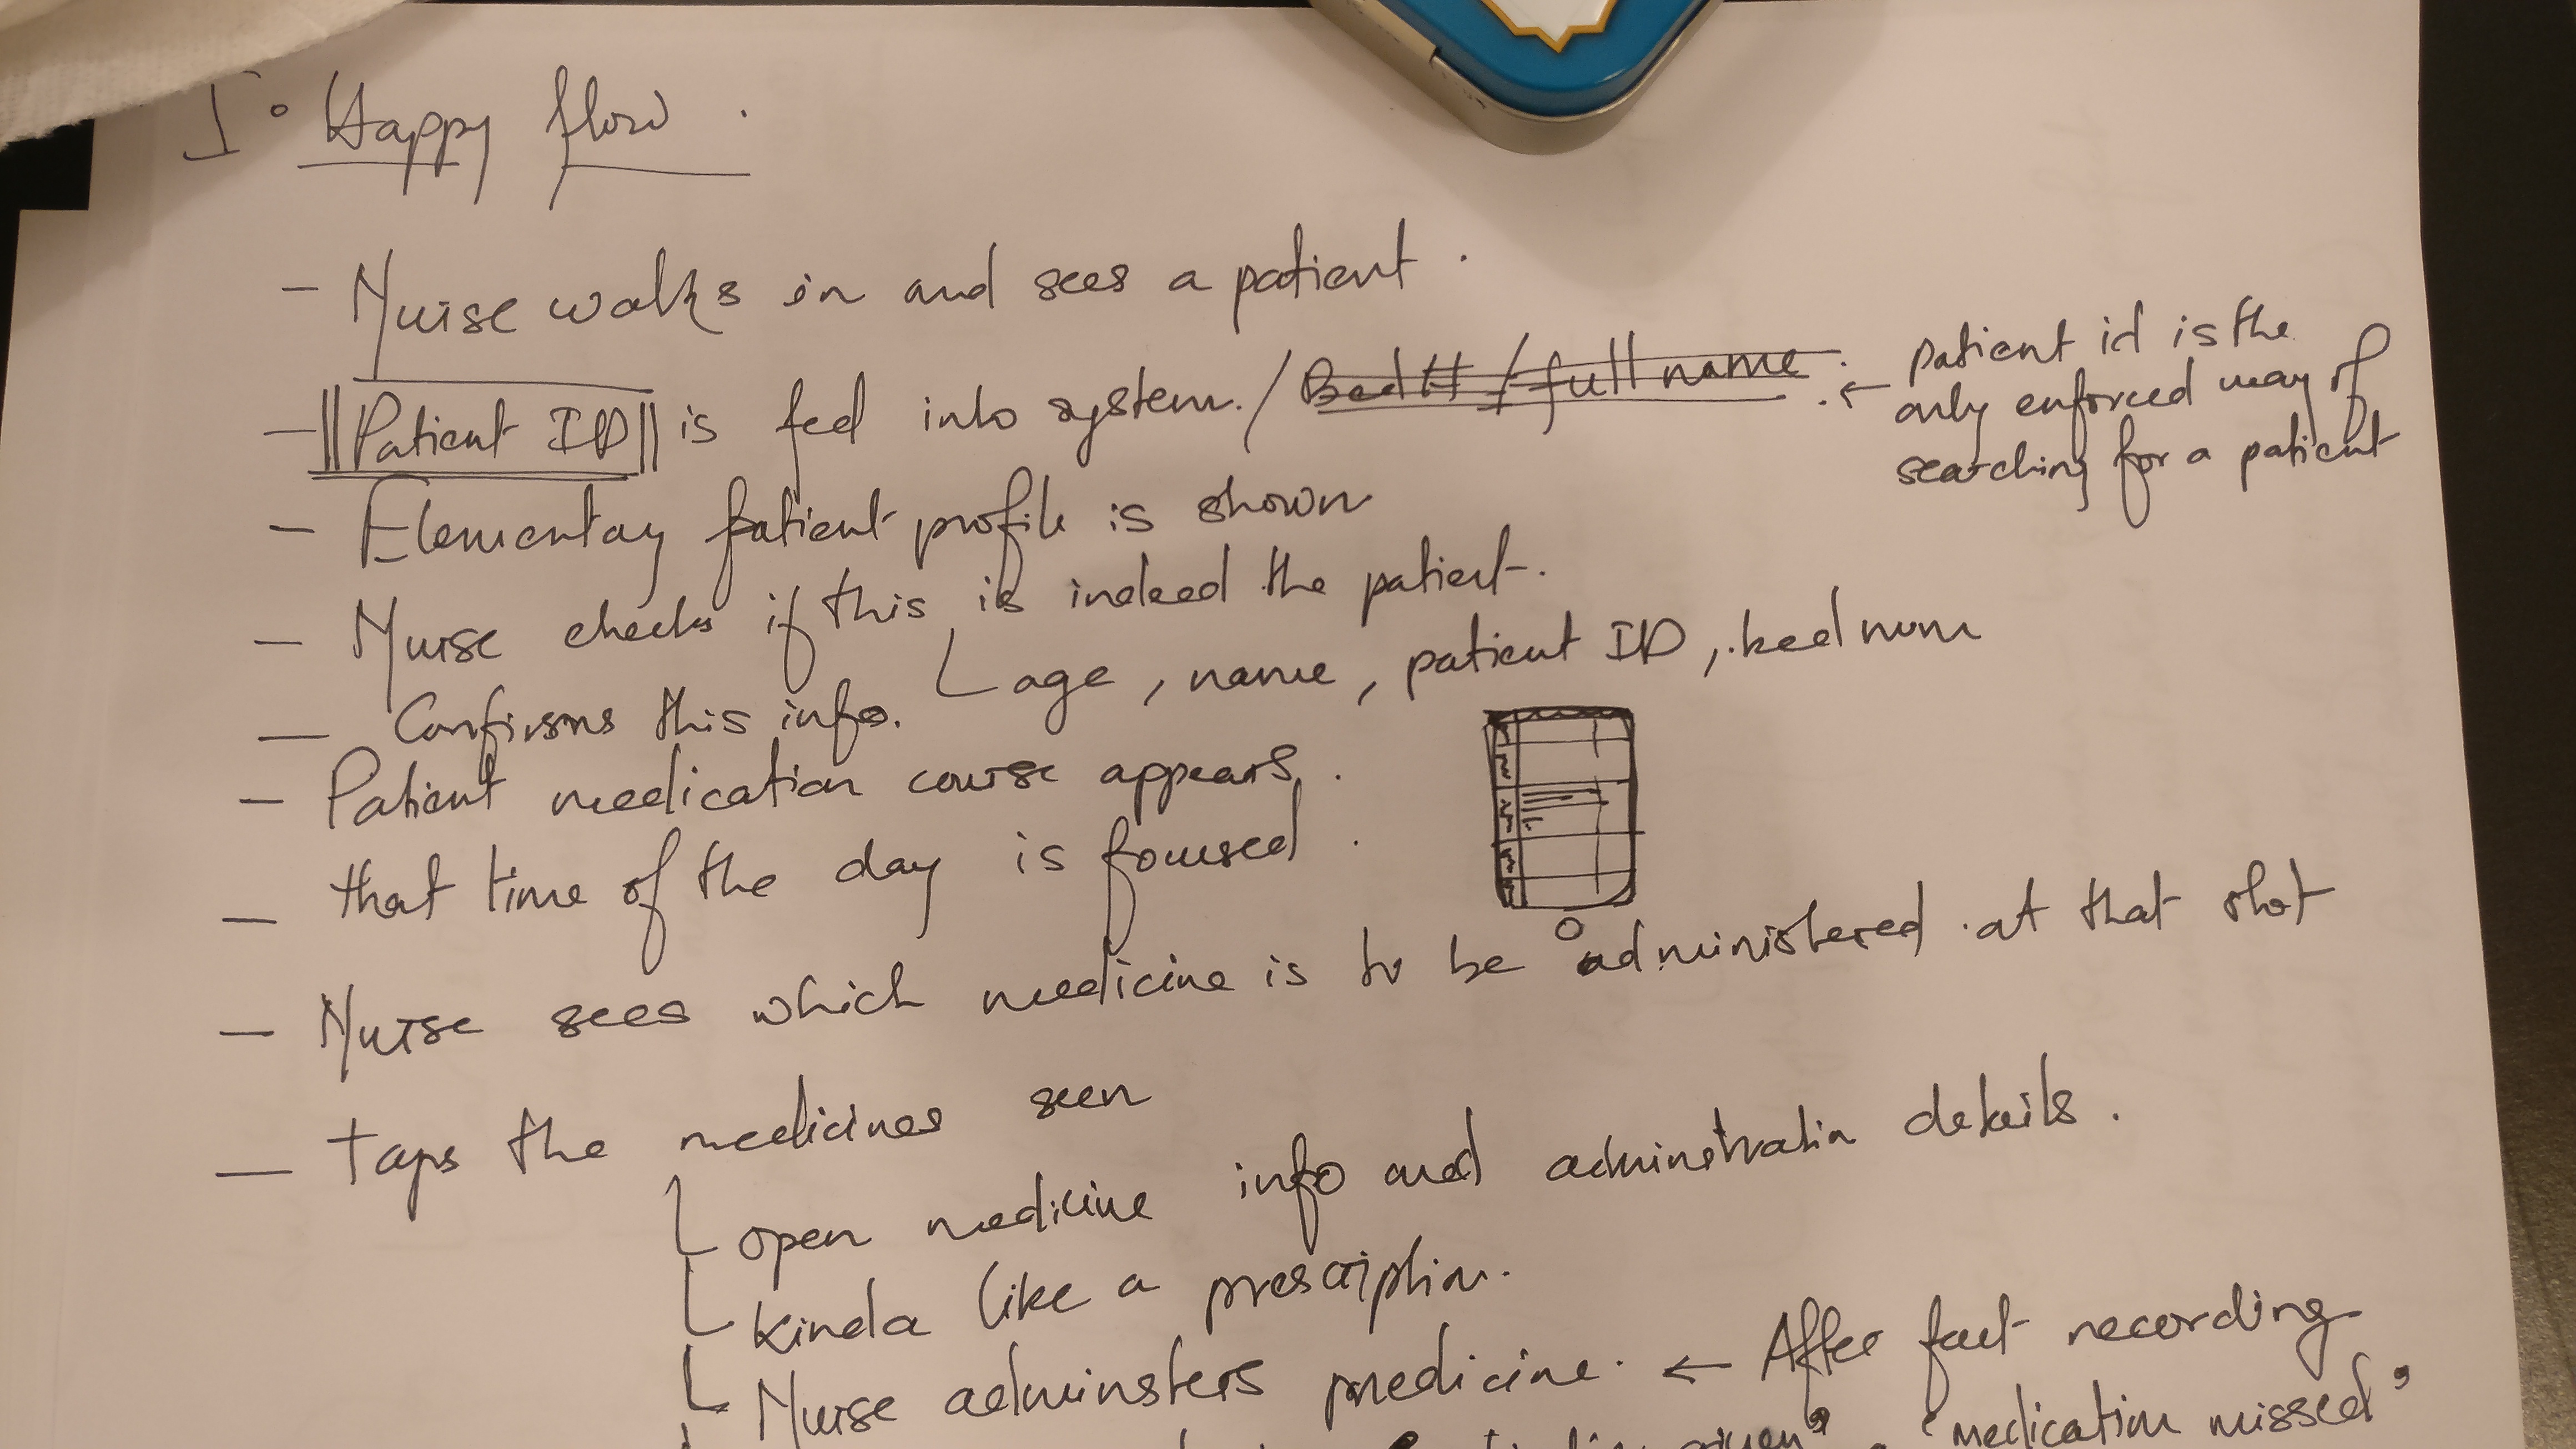 I. Happy flow.
- Nurse walks in and sees a patient.
- Patient ID is fed into system. / Bed # / full name. ← patient id is the
only enforced way of
searching for a patient
- Elementay patient profile is shown
- Nurse checks if this is indeed the patient.
age, name, patient ID, bed num
- Confirms this info.
- Patient medication course appears.
- that time of the day is focused.
- Nurse sees which medicine is to be administered at that slot
- Taps the medicines seen
open medicine info and adminstratin details.
kinda like a prescription.
Nurse adminsters medicine. ← After fact recording
given", "medication missed"